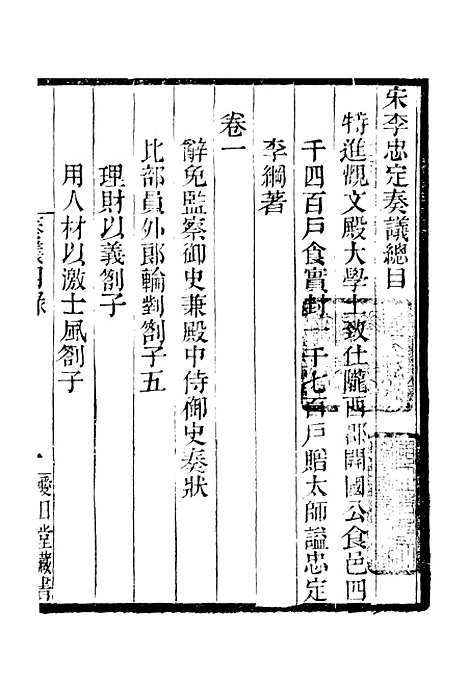 宋李忠定奏議總目
特進觀文殿大學士致仕隴西郡開國公食邑四
千四百戶食實封一千七百戶贈太師諡忠定
李綱著
卷一
辭免監察御史兼殿中侍御史奏狀
比部員外郎輪對劄子五
理財以義劄子
用人材以激士風劄子
奏議目錄
一
愛日堂藏書